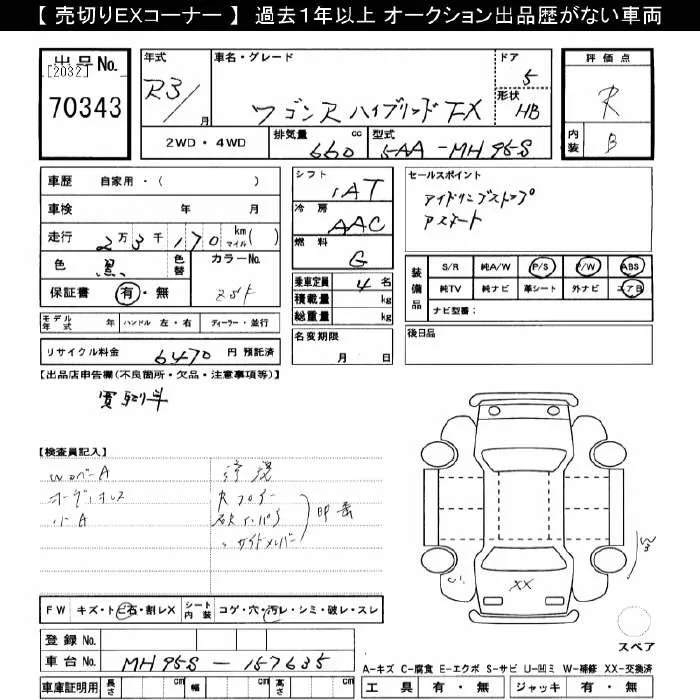 【 売切りEXコーナー 】 過去1年以上 オークション出品歴がない車両
出品No.
[2032]
70343
年式
R3/
月
車名・グレード
ワゴンR ハイブリッド FX
ドア
5
形状
HB
評価点
R
内装
B
2WD ・ 4WD
排気量
660
cc
型式
5AA-MH95S
車歴 自家用・( )
車検 年 月
走行 2万3千170 km マイル( )
色 黒 色替 カラーNo.
保証書 有・無 ZSF
モデル年式 年 ハンドル 左・右 ディーラー・並行
リサイクル料金 6470 円 預託済
シフト
IAT
冷房
AAC
燃料
G
乗車定員 4 名
積載量 kg
総重量 kg
名変期限
月 日
セールスポイント
アイドリングストップ
Aスマート
装備品
S/R 純A/W P/S P/W ABS
純TV 純ナビ 革シート 外ナビ エアB
ナビ型番:
後日品
【出品店申告欄(不良箇所・欠品・注意事項等)】
買取り車
【検査員記入】
オーディオレス
小A
Rフロアー
サイドメンバー
XX
W3
FW キズ・トビ石・割レX シート内装 コゲ・穴・汚レ・シミ・破レ・スレ
登録 No.
車台 No. MH95S-157635
車庫証明用 長さ cm 幅 cm 高さ cm
スペア
A-キズ C-腐食 E-エクボ S-サビ U-凹ミ W-補修 XX-交換済
工具 有・無 ジャッキ 有・無